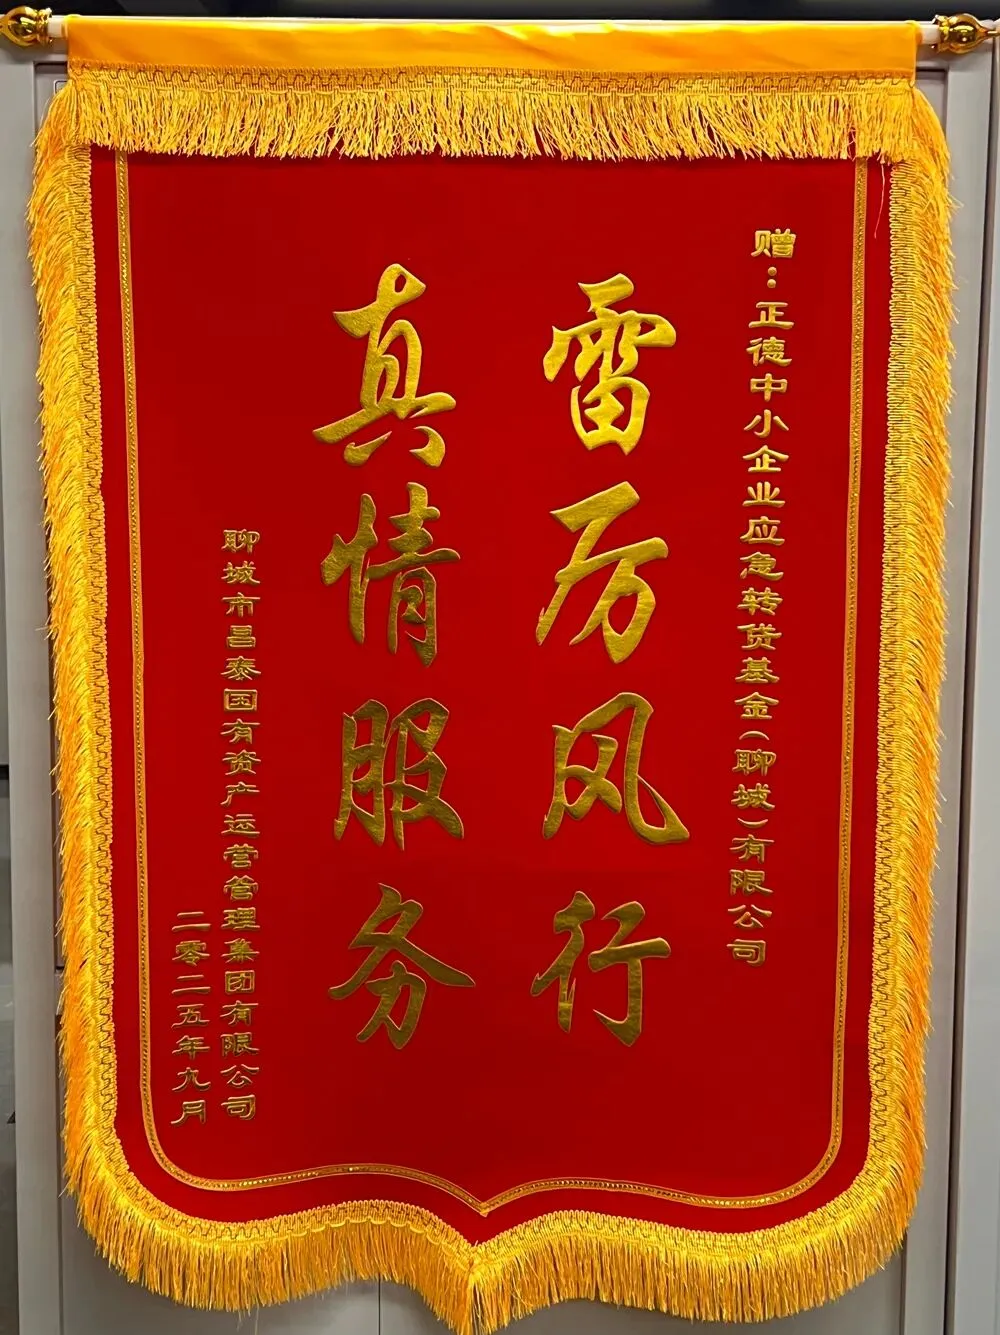 赠：正德中小企业应急转贷基金(聊城)有限公司
雷厉风行
真情服务
聊城市昌泰国有资产运营管理集团有限公司
二零二五年九月